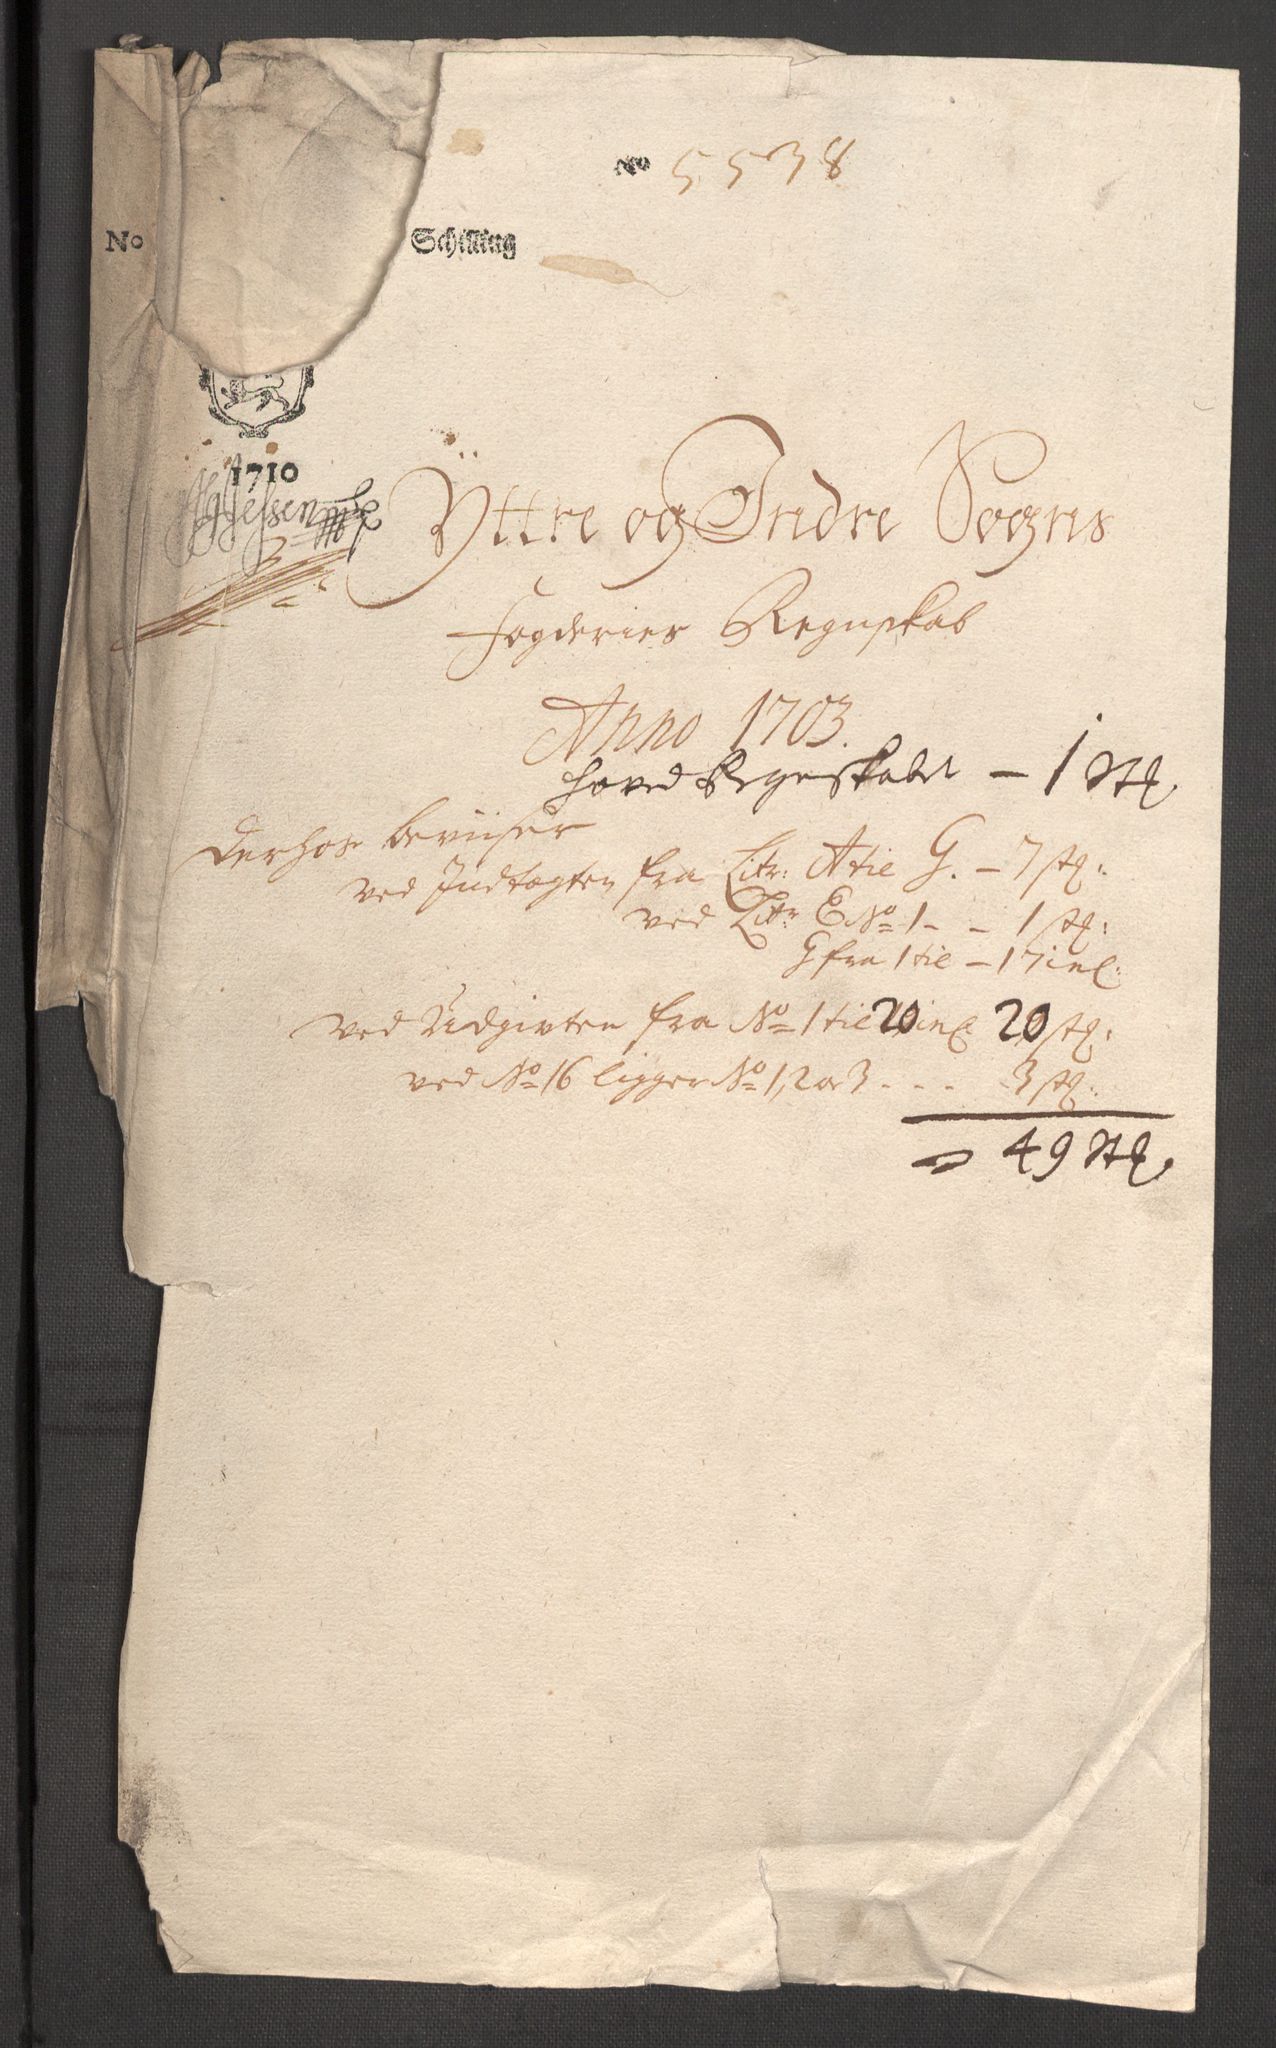 No 5538
No Schilling
1710
Yttre og Indre Sogns
Fogderies Regnskab
Anno 1703.
Hoved Regenskabet — 1 stk.
Derhos beviiser
ved Indtægten fra Litr: A til G. — 7 stk:
ved Litr E No 1 - - 1 stk:
G fra 1 til — 17 incl:
ved Udgivten fra No 1 til 20 incl. 20 stk:
ved No 16 ligger No 1, 2 og 3 - - - 3 stk:
49 stk.